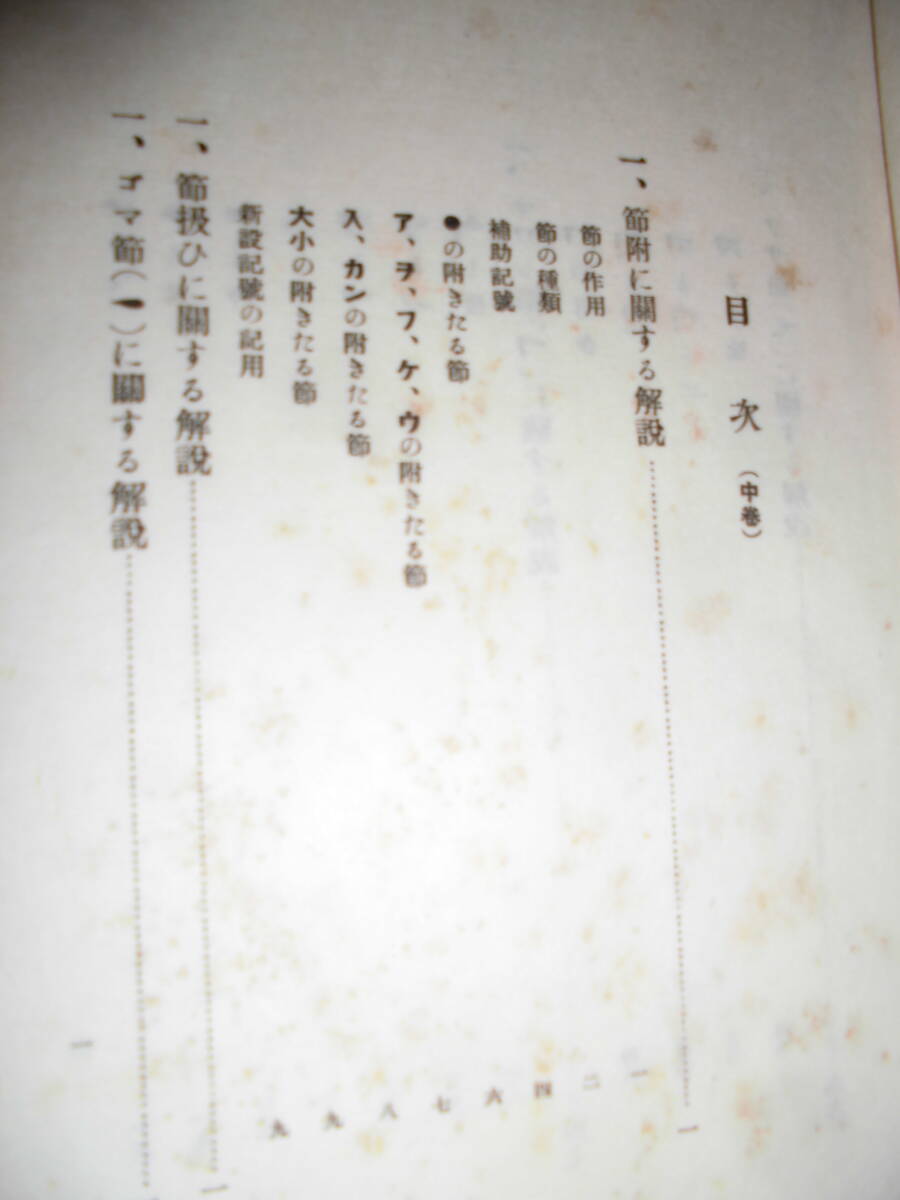 目次（中巻）
一、節附に關する解説……一
節の作用 一
節の種類 二
補助記號 四
●の附きたる節 六
ア、ヲ、フ、ケ、ウの附きたる節 七
入、カンの附きたる節 八
大小の附きたる節 九
新設記號の記用 九
一、節扱ひに關する解説……一
一、ゴマ節（﹅）に關する解説……
一